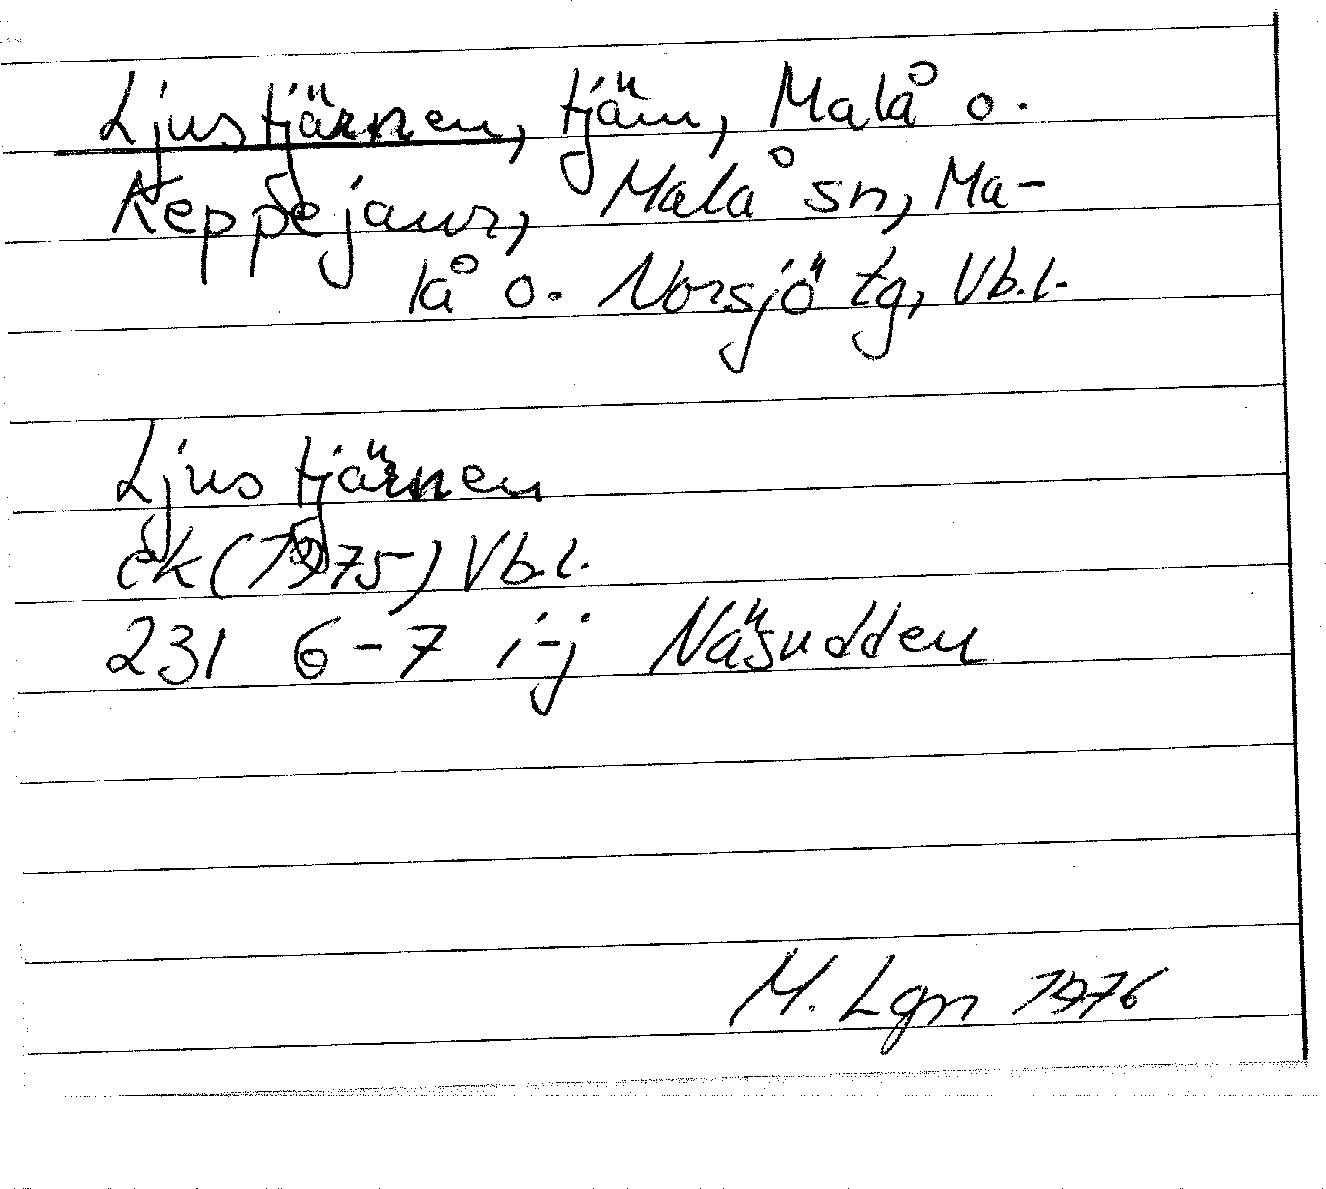 Ljustjärnen, tjärn, Malå o.
Keppejaur, Malå sn, Ma-
lå o. Norsjö tg, Vb.l.
Ljustjärnen
ek (1975) Vb.l.
231 6-7 i-j Näsudden
M. Lgn 1976